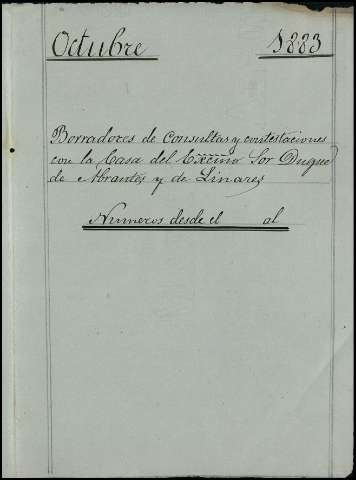 Octubre 1883
Borradores de Consultas y contestaciones
con la Casa del Excmo Sor Duque
de Abrantes y de Linares
Numeros desde el al